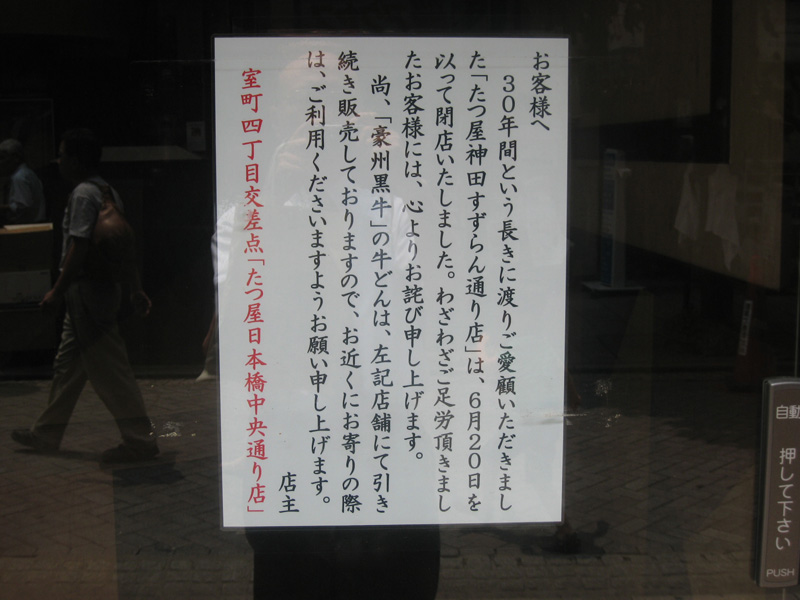 お客様へ
30年間という長きに渡りご愛顧いただきまし
た「たつ屋神田すずらん通り店」は、6月20日を
以って閉店いたしました。わざわざご足労頂きまし
たお客様には、心よりお詫び申し上げます。
尚、「豪州黒牛」の牛どんは、左記店舗にて引き
続き販売しておりますので、お近くにお寄りの際
は、ご利用くださいますようお願い申し上げます。
店主
室町四丁目交差点「たつ屋日本橋中央通り店」
自動
押して下さい
PUSH